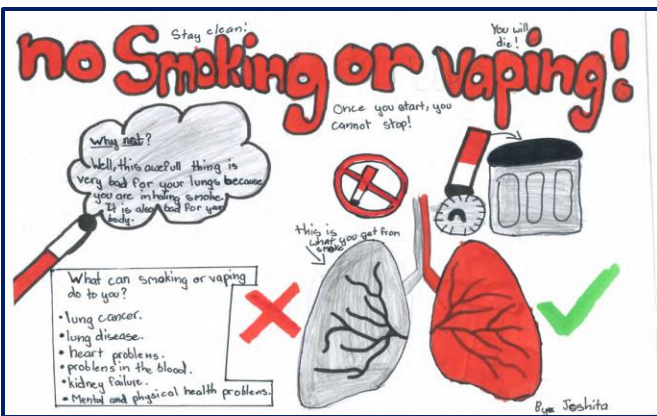 Stay clean!
You will
die!
no Smoking or vaping!
Once you start, you
cannot stop!
Why not?
Well, this awefull thing is
very bad for your lungs because
you are inhaling smoke.
It is also bad for your
body.
this is
what you get from
smoke
What can smoking or vaping
do to you?
• lung cancer.
• lung disease.
• heart problems.
• problems in the blood.
• kidney failure.
• Mental and physical health problems.
By: Joshita